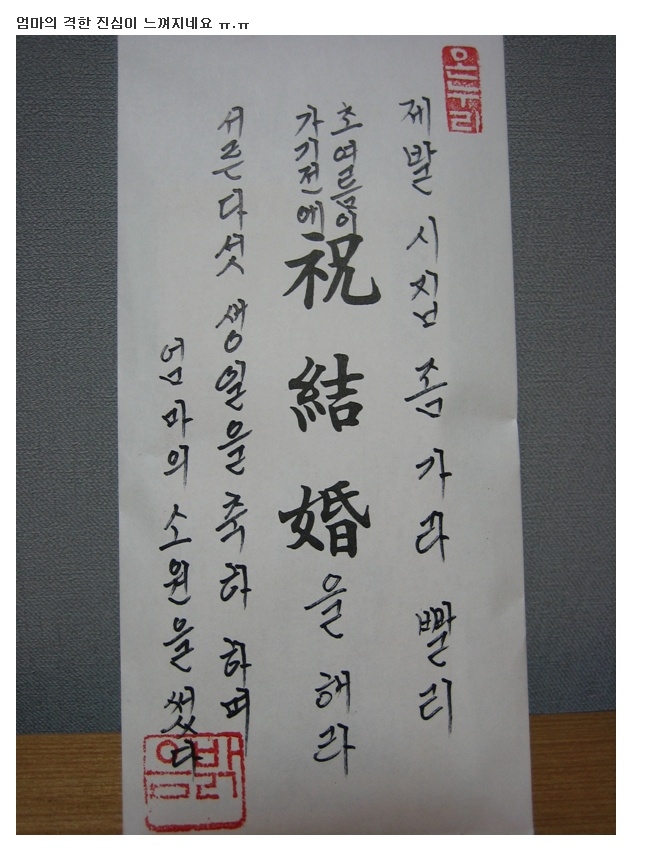 엄마의 격한 진심이 느껴지네요 ㅠ.ㅠ
온누리
제발 시집 좀 가라 빨리
초여름이
가기전에
祝結婚을 해라
서른다섯 생일을 축하 하며
엄마의 소원을 썼다
밝음